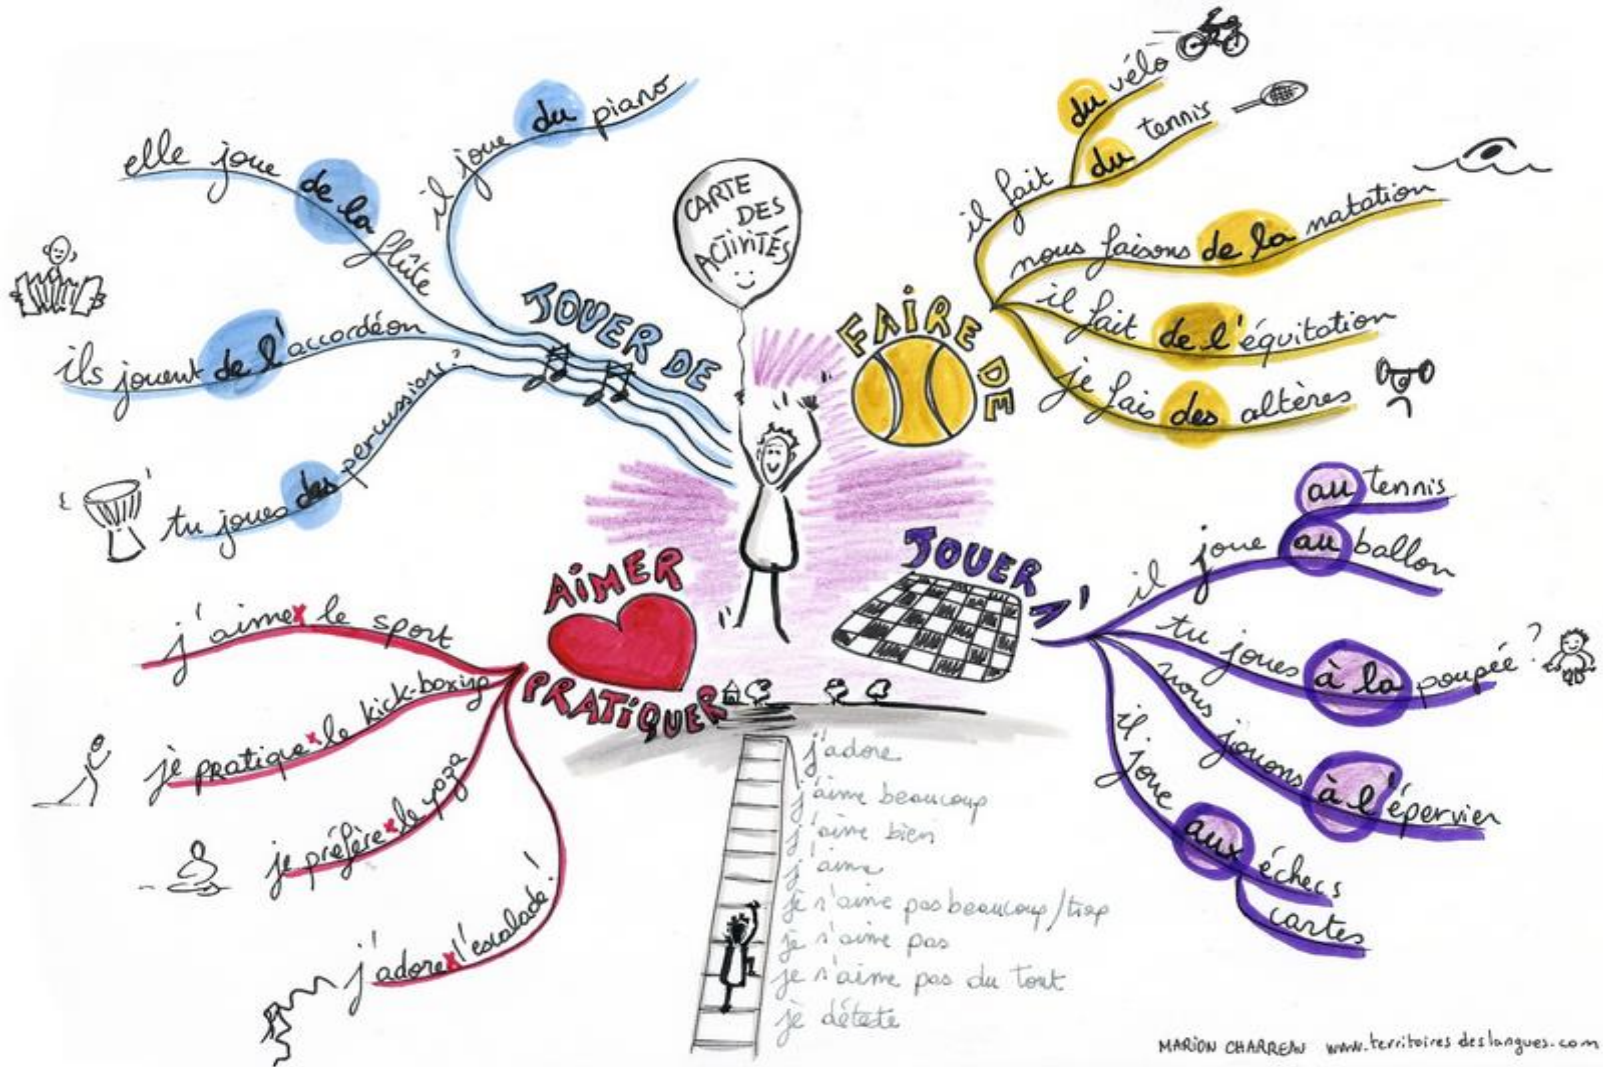 CARTE
DES
ACTIVITÉS
JOUER DE
il joue du piano
elle joue de la flûte
ils jouent de l'accordéon
tu joues des percussions?
FAIRE DE
il fait du vélo
du tennis
nous faisons de la natation
il fait de l'équitation
je fais des altères
JOUER À
il joue au tennis
au ballon
tu joues à la poupée?
nous jouons à l'épervier
il joue aux échecs
cartes
AIMER
PRATIQUER
j'aime x le sport
je pratique x le kick-boxing
je préfère x le yoga
j'adore x l'escalade!
j'adore
j'aime beaucoup
j'aime bien
j'aime
je n'aime pas beaucoup/trop
je n'aime pas
je n'aime pas du tout
je déteste
MARION CHARREAU www.territoiresdeslangues.com